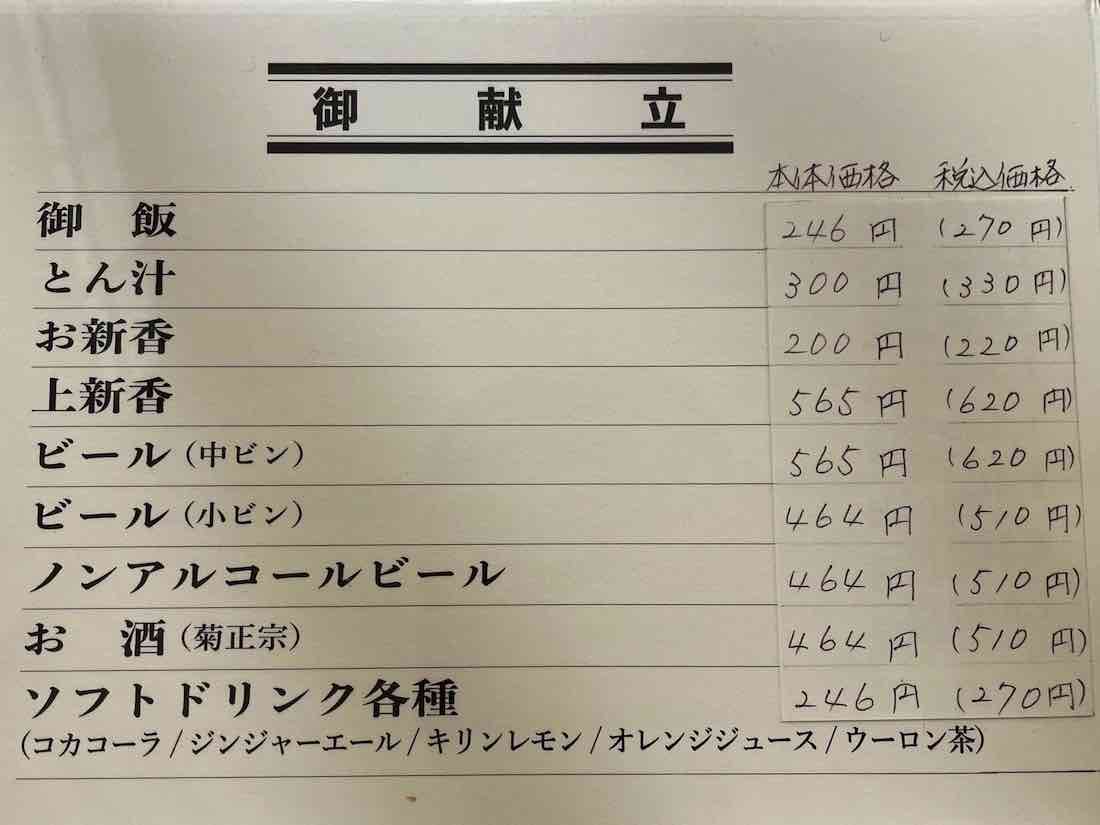 御献立
本体価格 税込価格
御飯 246円 (270円)
とん汁 300円 (330円)
お新香 200円 (220円)
上新香 565円 (620円)
ビール(中ビン) 565円 (620円)
ビール(小ビン) 464円 (510円)
ノンアルコールビール 464円 (510円)
お酒(菊正宗) 464円 (510円)
ソフトドリンク各種 246円 (270円)
(コカコーラ/ジンジャーエール/キリンレモン/オレンジジュース/ウーロン茶)